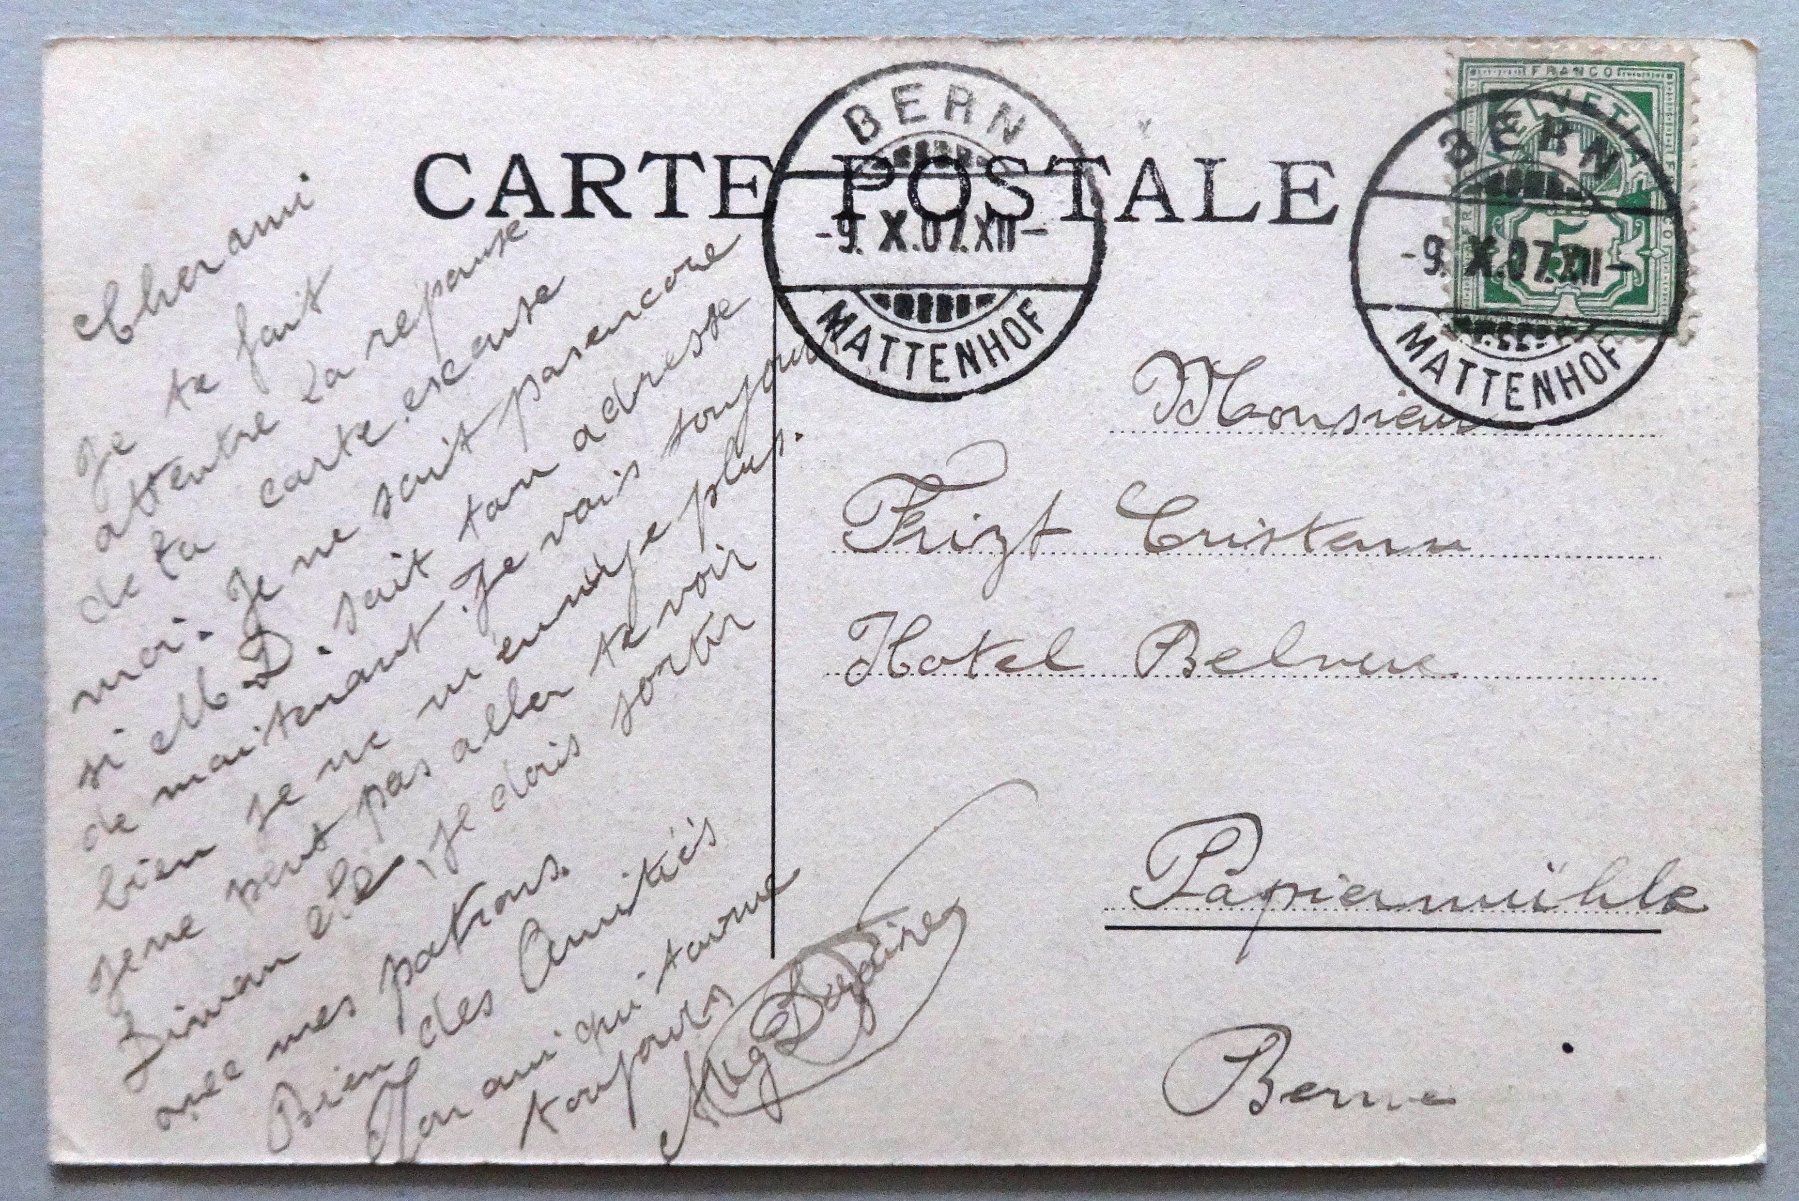 CARTE POSTALE
BERN
-9.X.07.XII-
MATTENHOF
BERN
-9.X.07.XII-
MATTENHOF
FRANCO
HELVETIA
5
Cher ami
Je te fait
attentre la reponse
de ta carte. escause
moi. Je ne sait pasencore
si M. D. sait ton adresse
de maitenant. Je vais toujours
bien je ne m'ennuije plus.
jene peut pas aller te voir
Diman che, je dois sortir
avec mes patrons.
Bien des Amitiés
Ton ami qui taime
toujours
Aug
Monsieur
Frizt Cristenn
Hotel Belvue.
Papiermühle
Berne